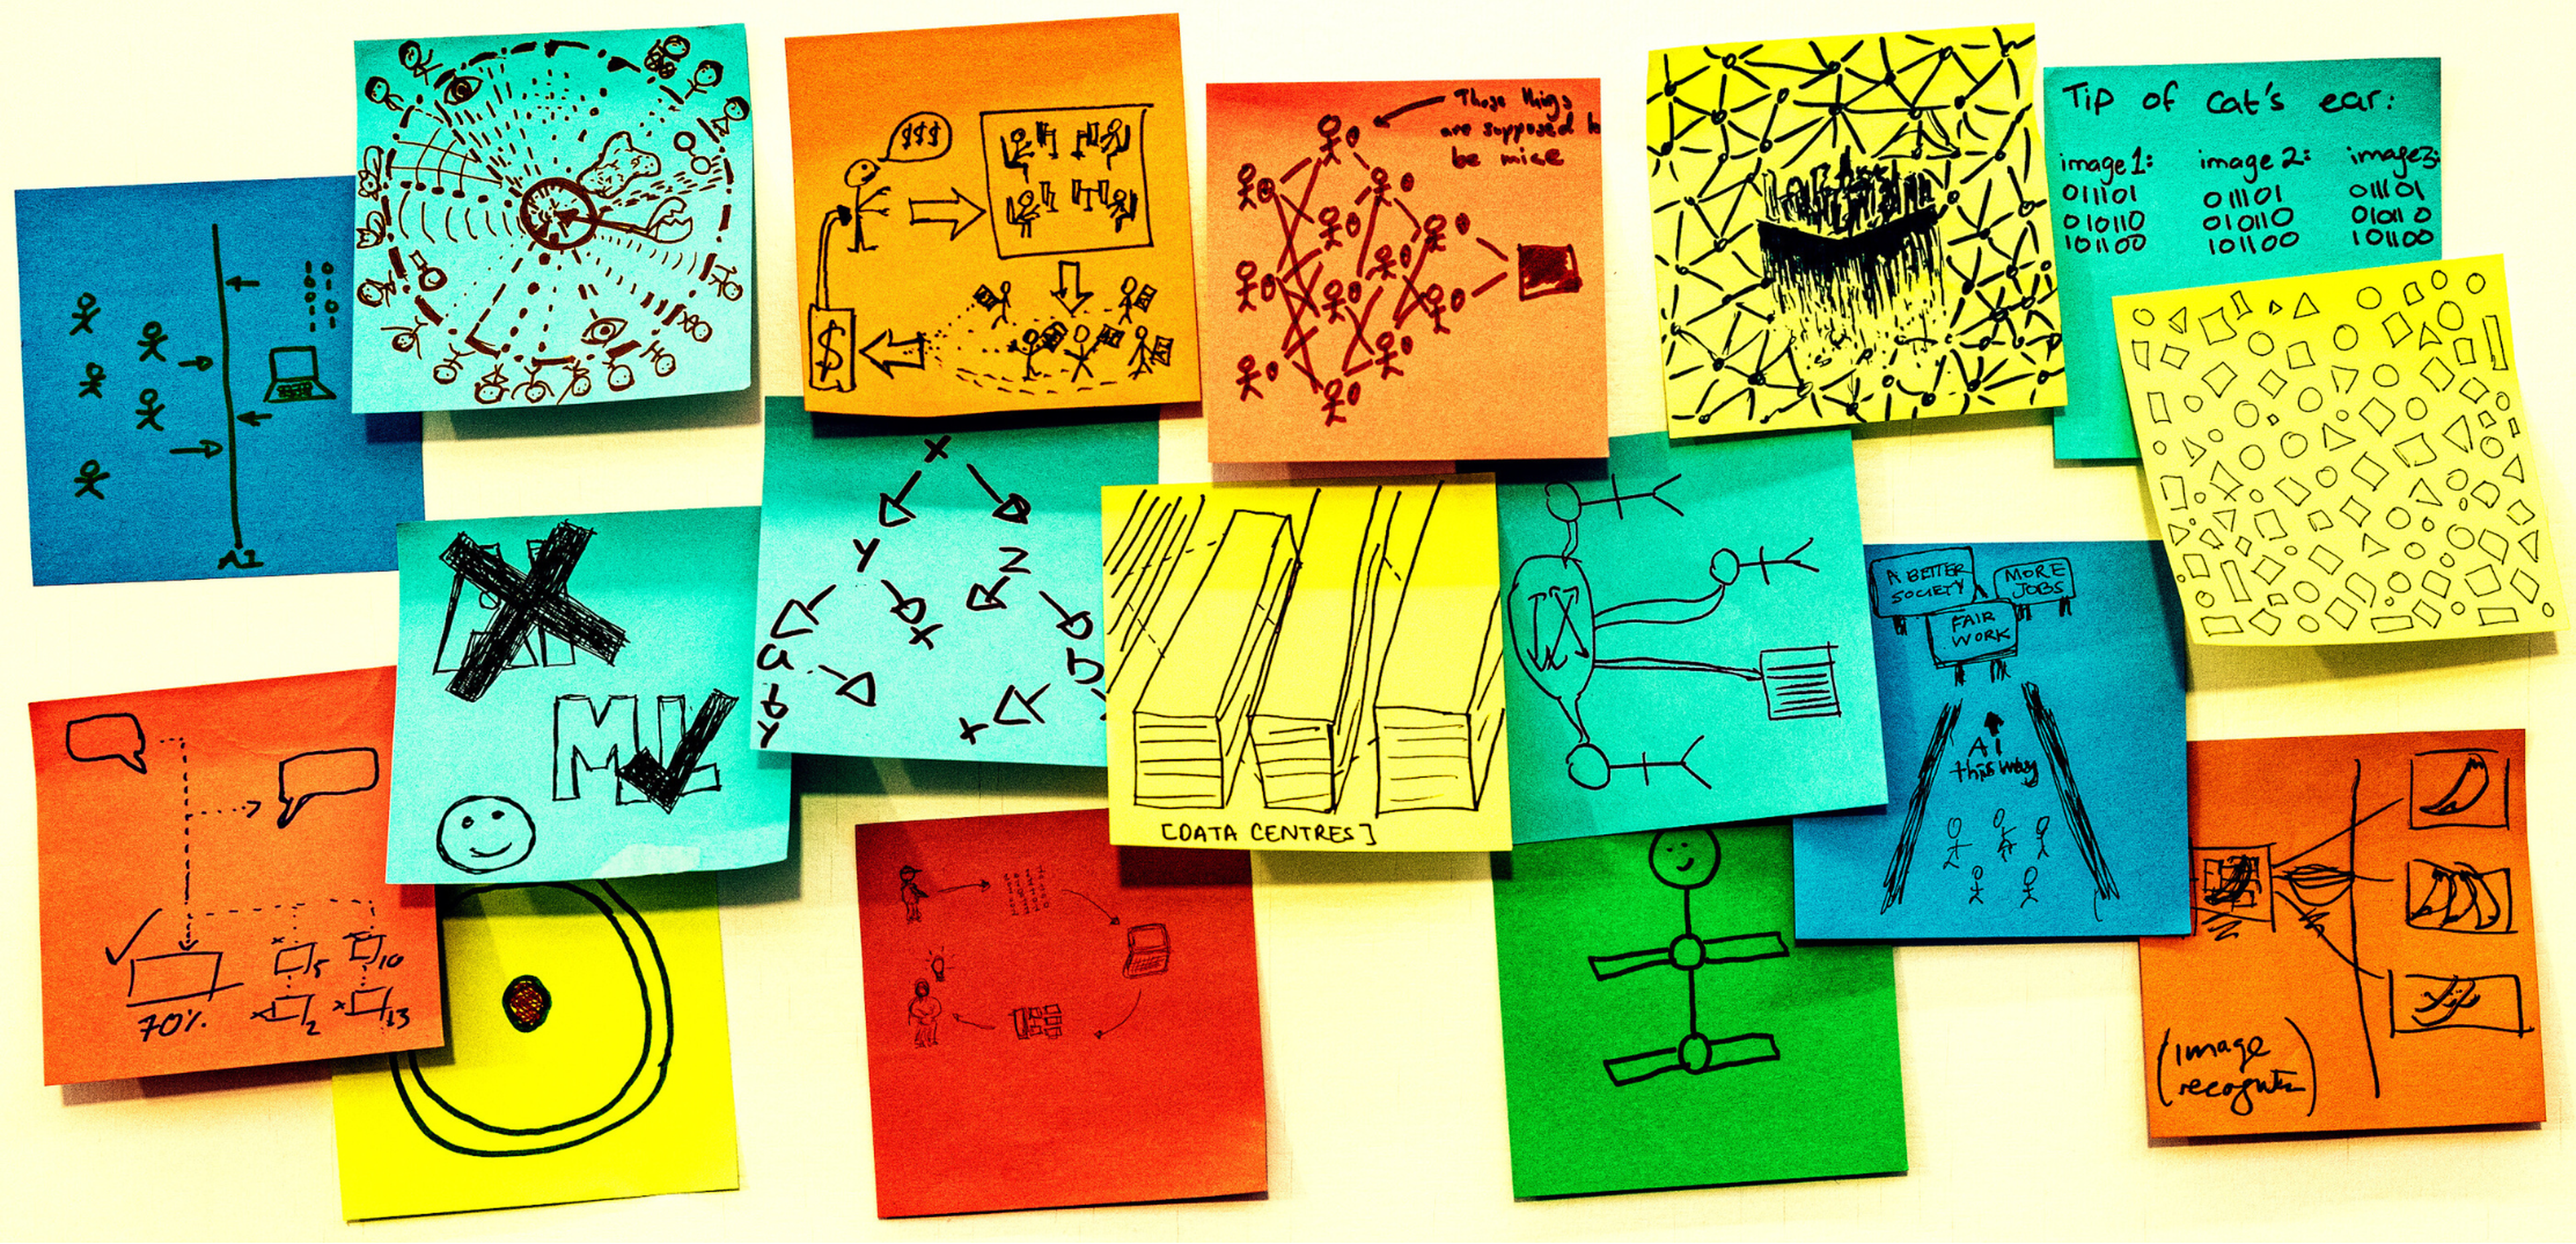 $$$
$
Those things
are supposed
be mice
Tip of Cat's ear:
image 1:
011101
010110
101100
image 2:
011101
010110
101100
image3:
011101
010110
101100
1 0
0 1
0 0
1 1
AI
AI
ML
X
Y
Z
X
a
b
b
Y
X
[DATA CENTRES]
A BETTER
SOCIETY
MORE
JOBS
FAIR
WORK
AI
this way
70%
5
10
2
13
(image